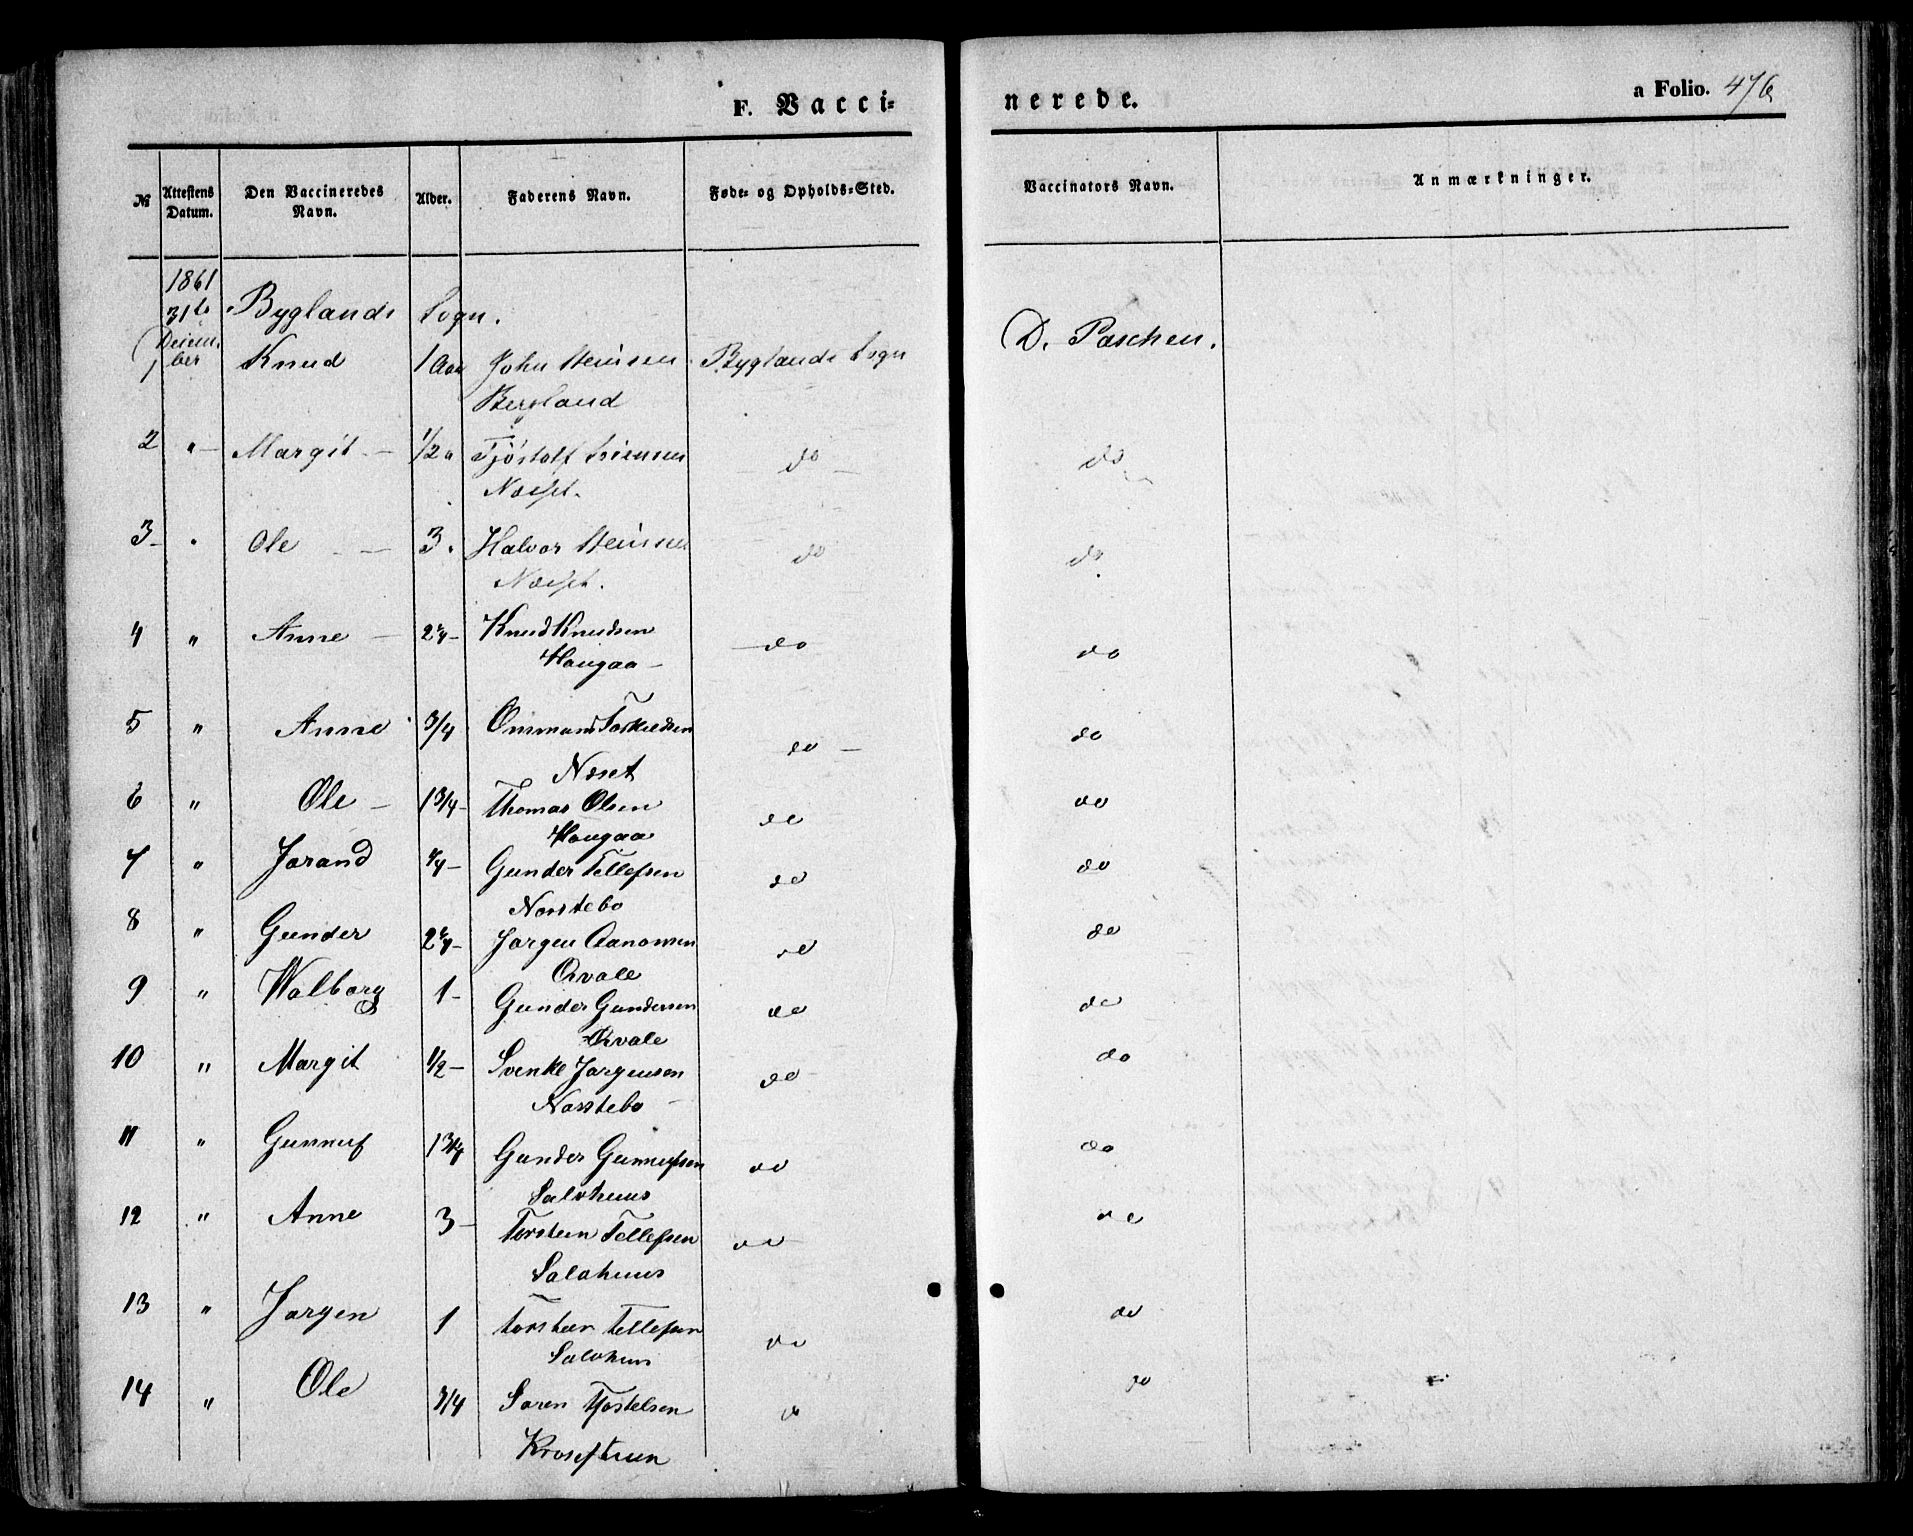 F. Vacci- nerede. a Folio. 476
№ Attestens Datum. Den Vaccineredes Navn. Alder. Faderens Navn. Føde- og Opholds-Sted. Vaccinators Navn. Anmærkninger.
1861
31te Byglands Sogn.
Decem-
1 ber Knud 1 Aar John Byglands Sogn D. Paschen.
Bergland
2 " — Margit — 1/2 " Tjöstolf do — do
Næset.
3 - " Ole — 3 " Halvor do do
Næset.
4 " Anne — 2 1/4 - Knud Knudsen — do do
Haugaa —
5 " Anne 3/4 Omund Torkildsen do — do
Næset
6 " Ole — 1 3/4 - Thomas Olsen do do
Haugaa
7 " Jorand 1/4 - Gunder Tellefsen do do
Norstebo
8 " Gunder 2 1/4 - Jørgen Aanonsen do do
Ovale
9 " Walborg 1 - Gunder Gundersen do do
Ovale
10 " Margit 1/2 - Svenke Jørgensen do do
Norstebo —
11 " Gunnuf 1 3/4 Gunder Gunnufsen do do
Salohuus
12 " Anne 3 - Torsten Tellefsen do do
Salohuus
13 " Jørgen 1 Torsten Tellefsen do do
Salohuus
14 " Ole 3/4 Søren Tjostelsen do do